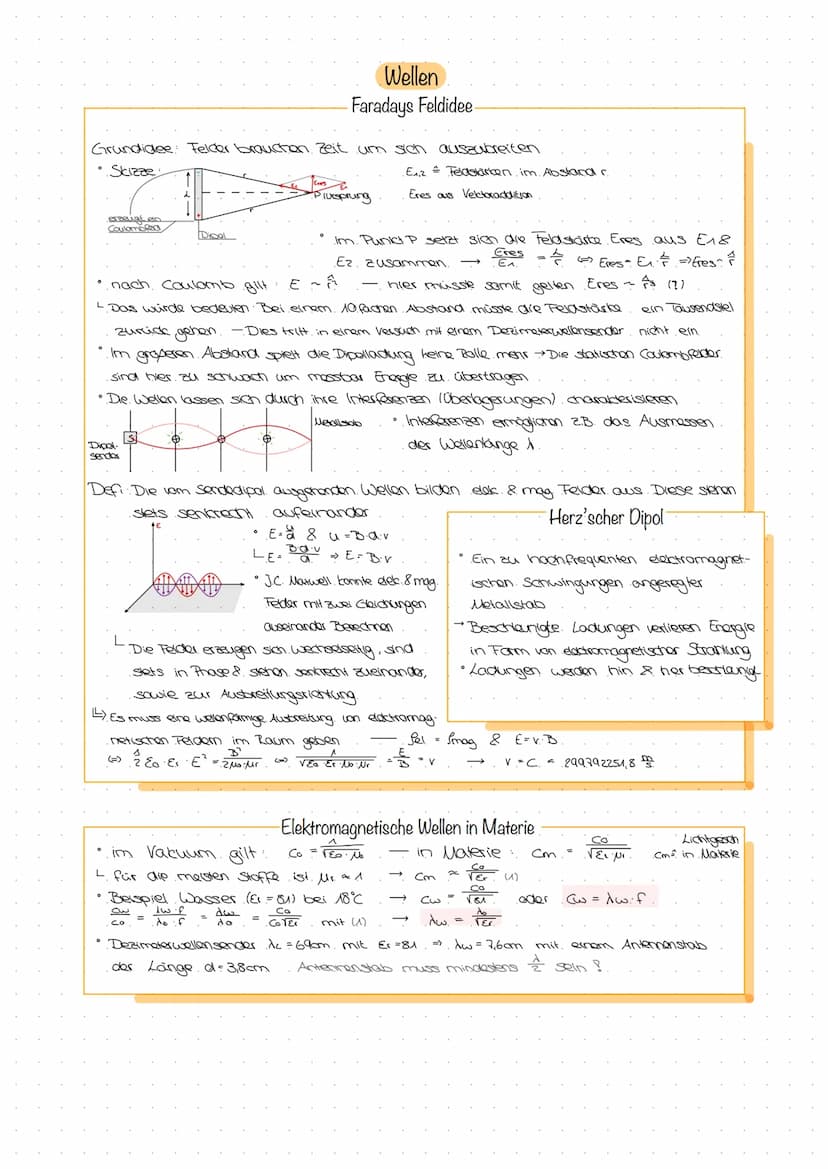 Wellen
Faradays Feldidee
Grundidee: Felder brauchen Zeit um sich auszubreiten
• Skizze:
E1,2 ≙ Feldstärken im Abstand r
Eres aus Vektoraddition
r
r
E1
Eres
E2
P Ursprung
erzeugt ein
Coulombfeld
Dipol
• Im Punkt P setzt sich die Feldstärke Eres aus E1 &
E2 zusammen → Eres/E1 = λ/r ⇔ Eres = E1 · λ/r ⇒ Eres ~ 1/r
• nach Coulomb gilt: E ~ 1/r² — hier müsste somit gelten Eres ~ 1/r³ (?)
└ Das würde bedeuten: Bei einem 10fachen Abstand müsste die Feldstärke ein Tausendstel
zurück gehen — Dies tritt in einem Versuch mit einem Dezimeterwellensender nicht ein
• Im größeren Abstand spielt die Dipolladung keine Rolle mehr → Die statischen Coulombfelder
sind hier zu schwach um messbar Energie zu übertragen
• Die Wellen lassen sich durch ihre Interferenzen (Überlagerungen) charakterisieren
Metallstab
Dipol-
sender
S
• Interferenzen ermöglichen z.B. das Ausmessen
der Wellenlänge λ
Def: Die vom Sendedipol ausgehenden Wellen bilden elek. & mag Felder aus Diese stehen
stets senkrecht aufeinander
E
• E = u/d & u = B·d·v
└ E = B·d·v/d ⇒ E = B·v
• J.C. Maxwell konnte elek. & mag.
Felder mit zwei Gleichungen
auseinander Berechnen
└ Die Felder erzeugen sich wechselseitig, sind
stets in Phase & stehen senkrecht zueinander,
sowie zur Ausbreitungsrichtung
↳ Es muss eine wellenförmige Ausbreitung von elektromag-
netischen Feldern im Raum geben — ρel = ρmag & E = v·B
⇔ 1/2 ε0 · εr · E² = B²/2μ0·μr ⇔ 1/√ε0·εr·μ0·μr = E/B = v → v = c = 299792251,8 m/s
Herz'scher Dipol
• Ein zu hochfrequenten elektromagnet-
ischen Schwingungen angeregter
Metallstab
→ Beschleunigte Ladungen verlieren Energie
in Form von elektromagnetischer Strahlung
• Ladungen werden hin & her beschleunigt
Elektromagnetische Wellen in Materie
• im Vakuum gilt: c0 = 1/√ε0·μ0 — in Materie: cm = c0/√εr·μr
Lichtgesch
cm ≙ in Materie
└ für die meisten Stoffe ist μr ≈ 1 → cm ≈ c0/√εr (1)
• Beispiel Wasser (εr = 81) bei 18°C → cw = c0/√81 oder cw = λw·f
cw/c0 = λw·f/λ0·f = λw/λ0 = c0/c0√εr mit (1) → λw = λ0/√εr
• Dezimeterwellensender λL = 69cm mit εr = 81 ⇒ λw = 7,6cm mit einem Antennenstab
der Länge d = 3,8cm Antennenstab muss mindestens λ/2 sein !